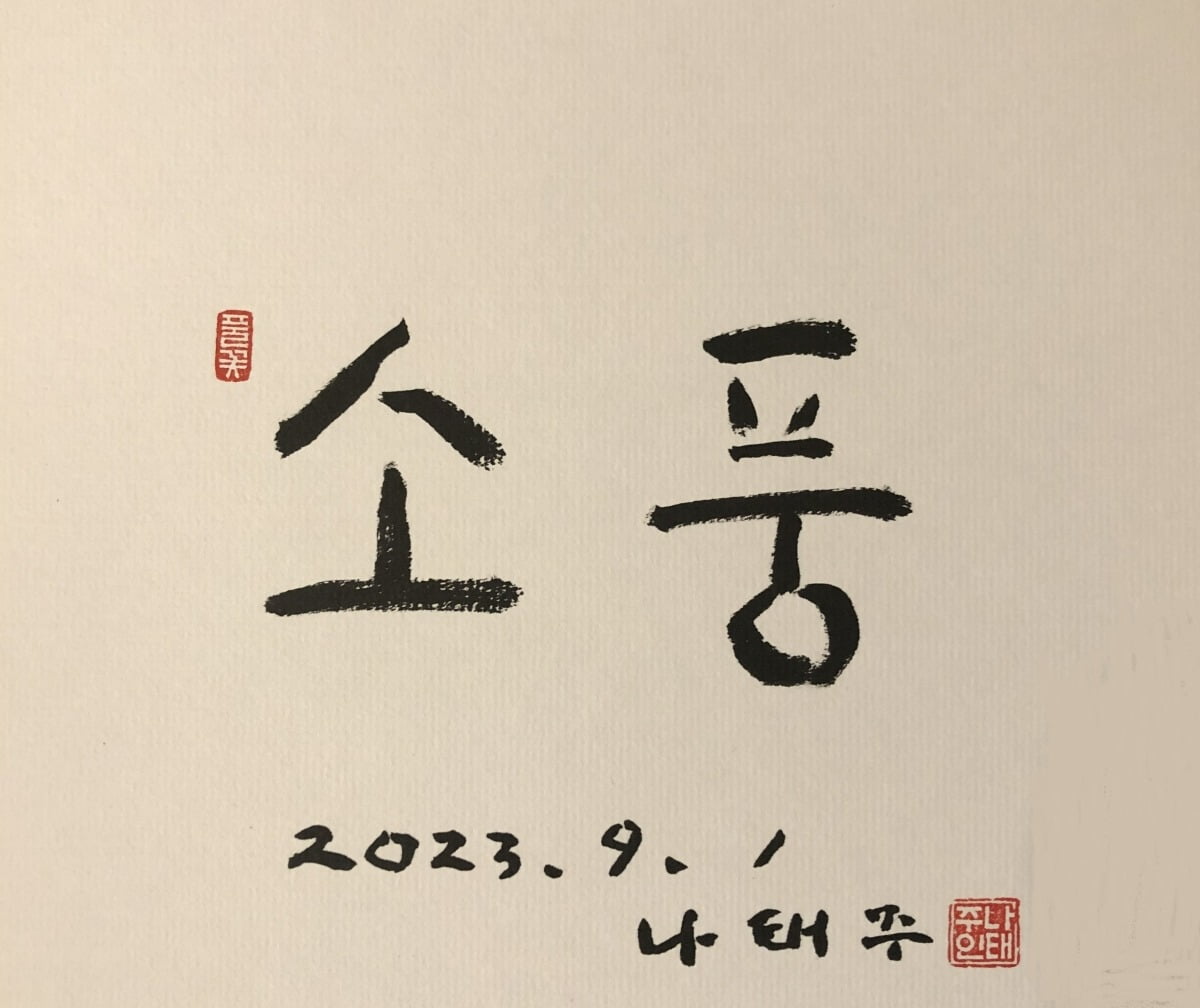 풀꽃
소풍
2023. 9. 1
나태주
나태주인